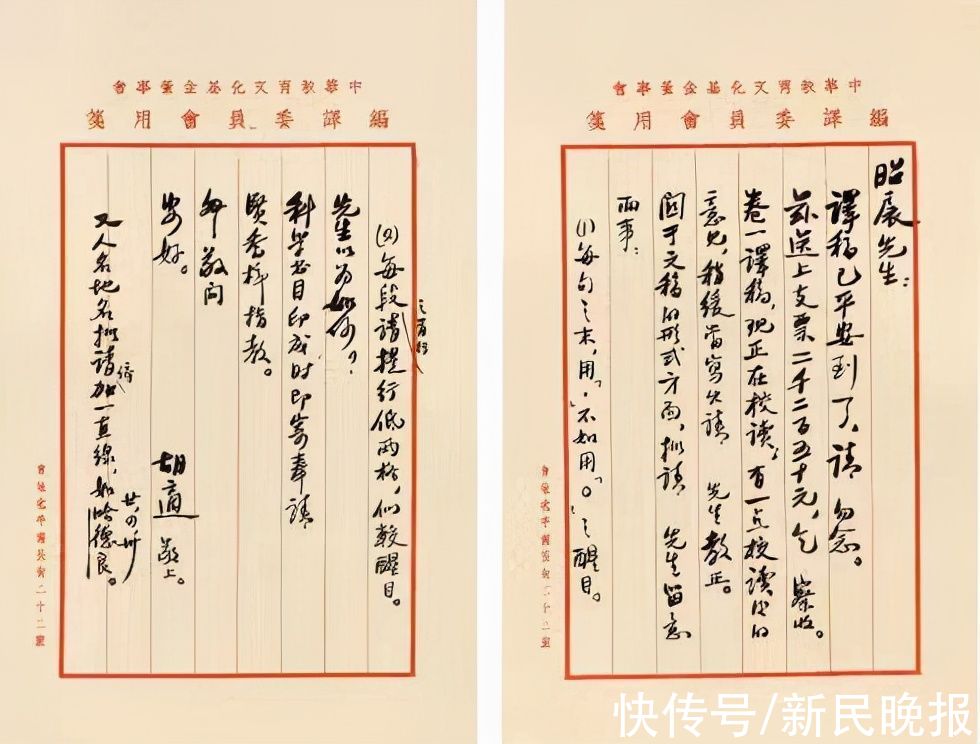 中華教育文化基金董事會
編譯委員會用箋
昭扆先生：
譯稿已平安到了，請 勿念。
茲送上支票二千二百五十元，乞 察收。
卷一譯稿，現正在校讀，有一点校讀後的
意見，稍緩當寫出請 先生教正。
關于文稿的形式方面，擬請 先生留意
兩事：
(1)每句之末，用「.」不如用「。」之醒目。
會址北平南長街二十二號
中華教育文化基金董事會
編譯委員會用箋
(2)每段之首行請提行低兩格，似較醒目。
先生以为如何？
科学書目印成时即寄奉請
賢喬梓指教。
匆敬问
安好。
胡適 敬上。
廿,四,卅
又人名地名擬請傍加一直線，如哈德良。
會址北平南長街二十二號
快传号/新民晚报